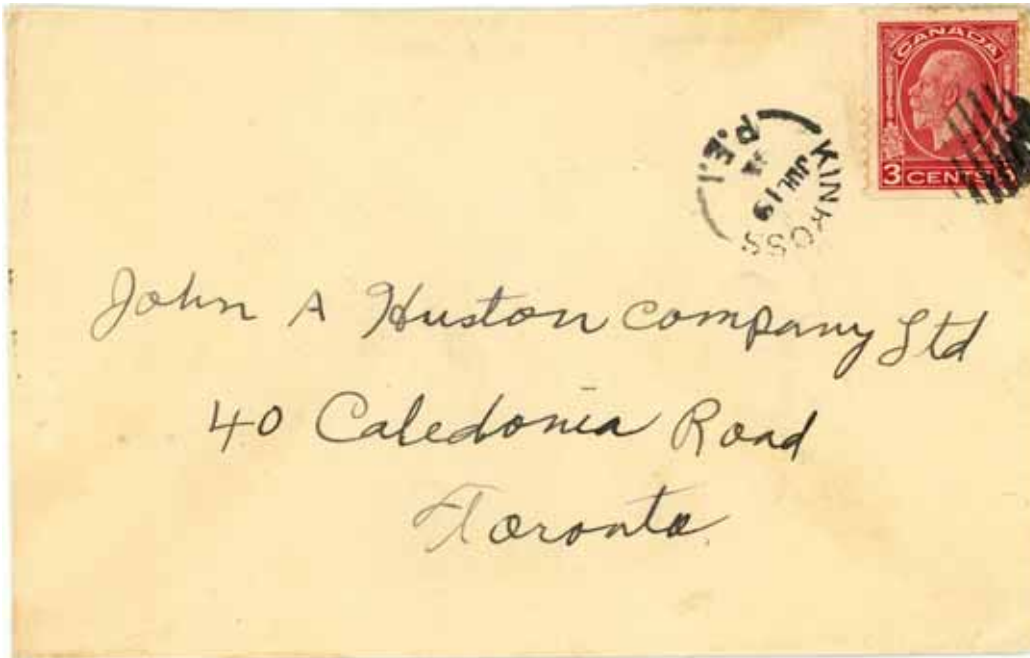 CANADA
3 CENTS
KINKOSS
JUL 19
P.E.I.
John A Huston Company Ltd
40 Caledonia Road
Toronto